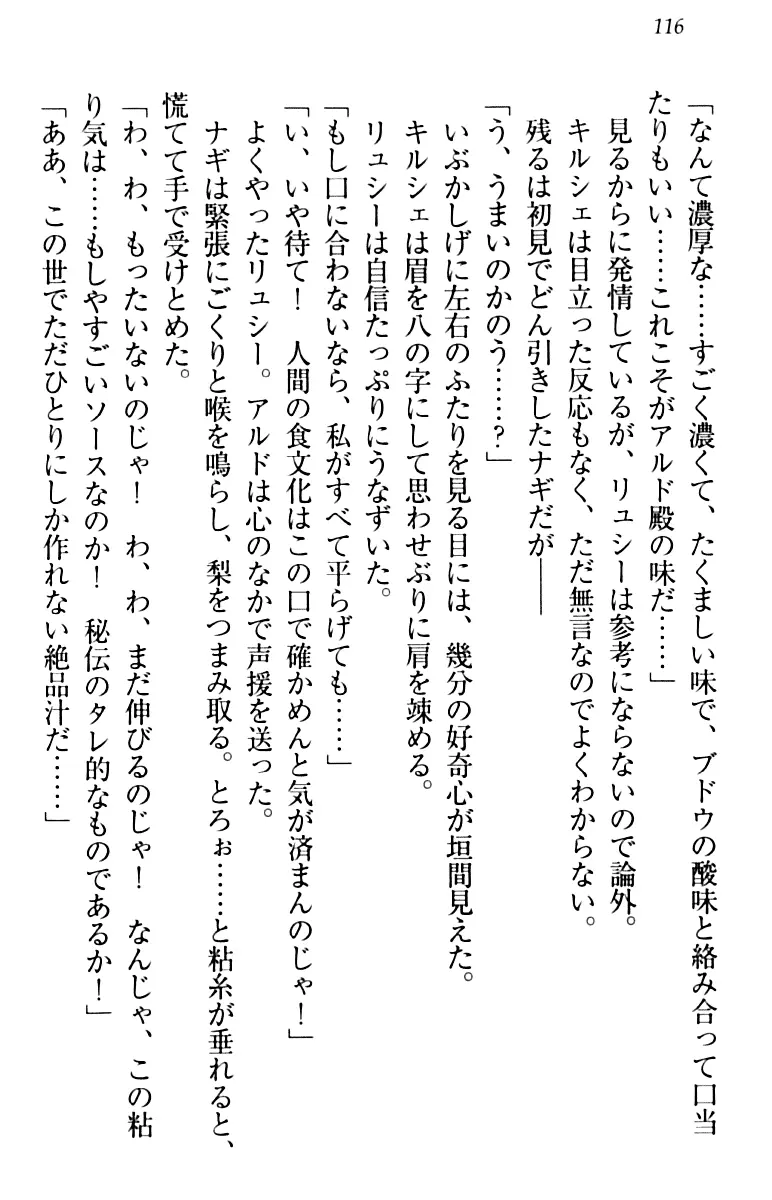 116
「なんて濃厚な……すごく濃くて、たくましい味で、ブドウの酸味と絡み合って口当
たりもいい……これこそがアルド殿の味だ……」
見るからに発情しているが、リュシーは参考にならないので論外。
キルシェは目立った反応もなく、ただ無言なのでよくわからない。
残るは初見でどん引きしたナギだが――
「う、うまいのかのう……？」
いぶかしげに左右のふたりを見る目には、幾分の好奇心が垣間見えた。
キルシェは眉を八の字にして思わせぶりに肩を竦める。
リュシーは自信たっぷりにうなずいた。
「もし口に合わないなら、私がすべて平らげても……」
「い、いや待て！　人間の食文化はこの口で確かめんと気が済まんのじゃ！」
よくやったリュシー。アルドは心のなかで声援を送った。
ナギは緊張にごくりと喉を鳴らし、梨をつまみ取る。とろぉ……と粘糸が垂れると、
慌てて手で受けとめた。
「わ、わ、もったいないのじゃ！　わ、わ、まだ伸びるのじゃ！　なんじゃ、この粘
り気は……もしやすごいソースなのか！　秘伝のタレ的なものであるか！」
「ああ、この世でただひとりにしか作れない絶品汁だ……」